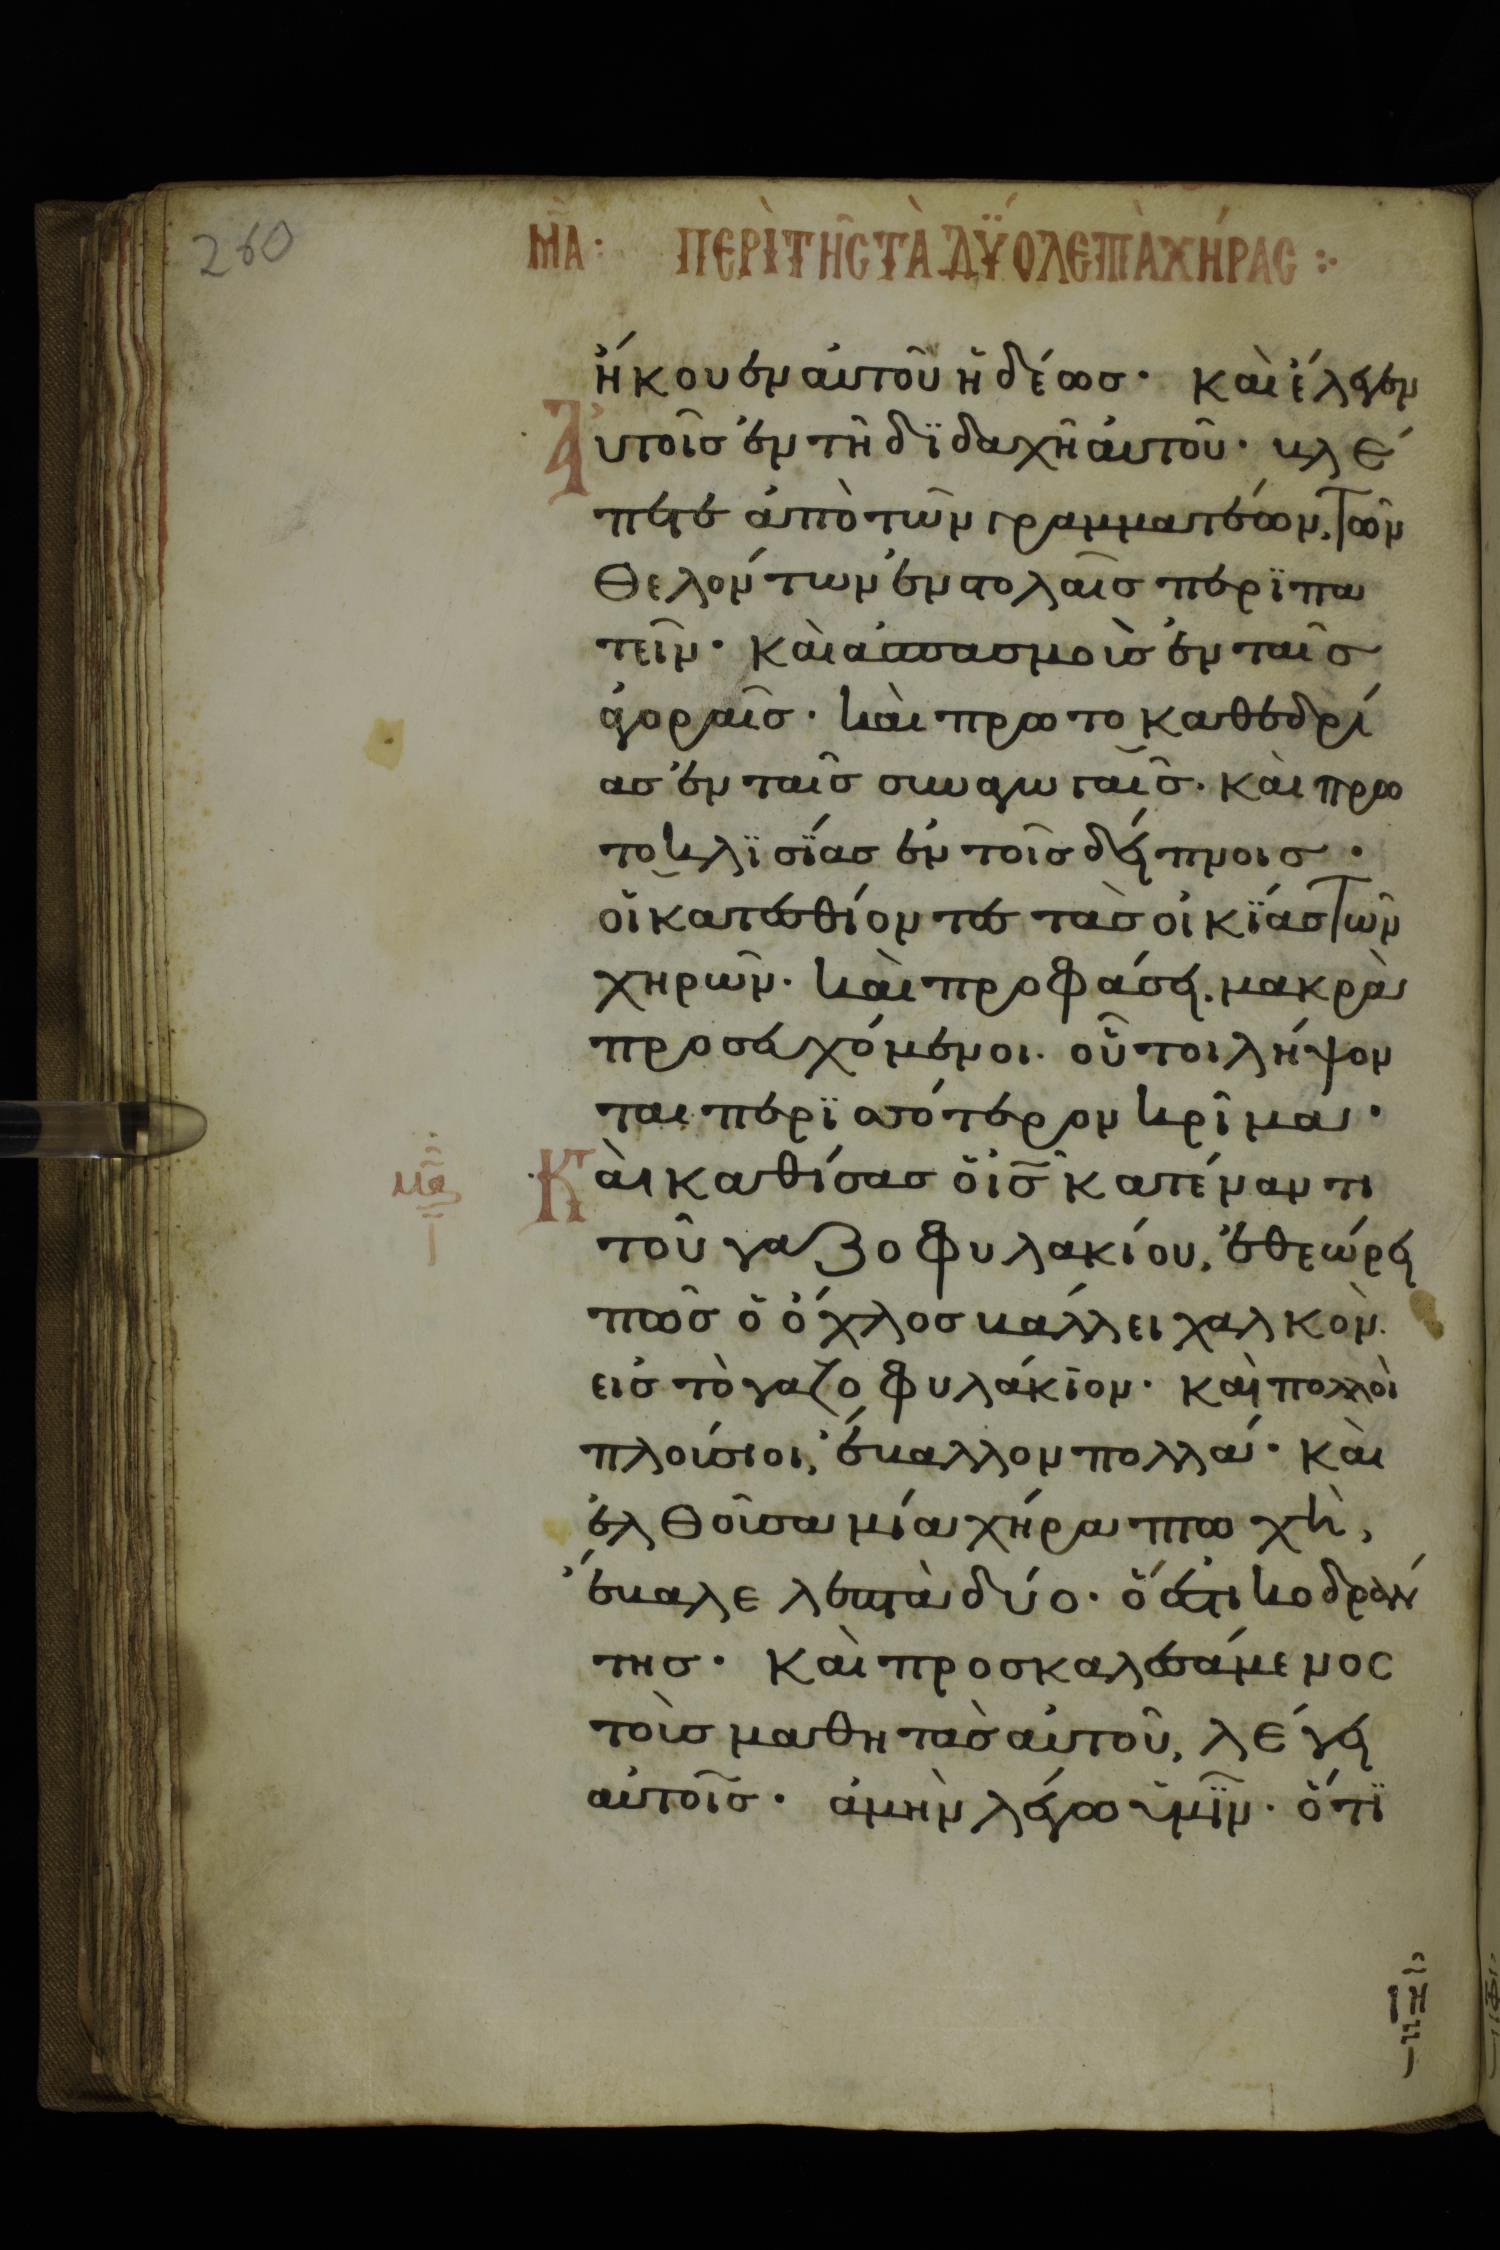 260
ΜΑ: ΠΕΡῚ ΤΗ͂Σ ΤᾺ ΔΥΌ ΛΕΠΤᾺ ΧΉΡΑΣ :·
ἤκουεν αὐτοῦ ἡδέως· καὶ ἔλεγεν
Αὐτοῖς ἐν τῆ διδαχῆ αὐτοῦ· βλέ
πετε ἀπὸ τῶν γραμματέων, τῶν
θελόντων ἐν στολαῖς περιπα
τεῖν· καὶ ἀσπασμοὺς ἐν ταῖς
ἀγοραῖς· καὶ πρωτοκαθεδρί
ας ἐν ταῖς συναγωγαῖς· καὶ πρω
τοκλισίας ἐν τοῖς δείπνοις·
οἱ κατεσθίοντες τὰς οἰκίας τῶν
χηρῶν· καὶ προφάσει μακρὰ
προσευχόμενοι· οὗτοι λήψον
ται περισσότερον κρῖμα·
μα
Καὶ καθίσας ὁ ις κατέναντι
τοῦ γαζοφυλακίου, ἐθεώρει
πῶς ὁ ὄχλος βάλλει χαλκὸν
εἰς τὸ γαζοφυλάκιον· καὶ πολλοὶ
πλούσιοι, ἔβαλλον πολλά· καὶ
ἐλθοῦσα μία χήρα πτωχὴ,
ἔβαλε λεπτὰ δύο· ὅ ἐστι κοδράν
της· καὶ προσκαλεσάμενος
τοὺς μαθητὰς αὐτοῦ, λέγει
αὐτοῖς· ἀμὴν λέγω ὑμῖν· ὅτι